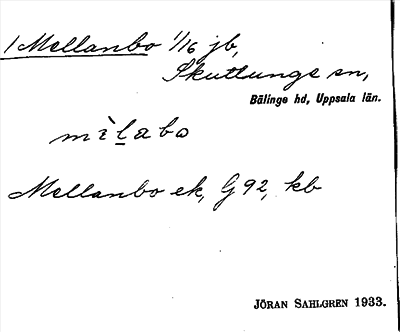 1 Mellanbo 1/16 jb,
Skuttunge sn,
Bälinge hd, Uppsala län.
mìḻabo
Mellanbo ek, G 92, kb
JÖRAN SAHLGREN 1933.